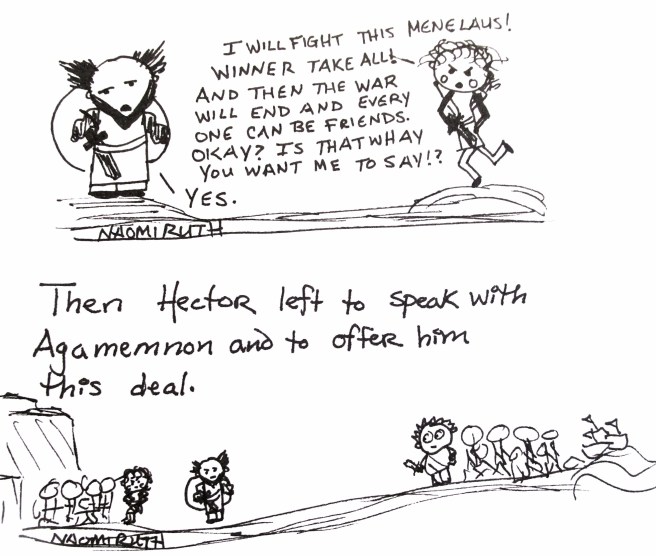 I WILL FIGHT THIS MENELAUS!
WINNER TAKE ALL!
AND THEN THE WAR
WILL END AND EVERY
ONE CAN BE FRIENDS.
OKAY? IS THAT WHAY
YOU WANT ME TO SAY!?
YES.
NAOMI RUTH
Then Hector left to speak with
Agamemnon and to offer him
this deal.
NAOMI RUTH